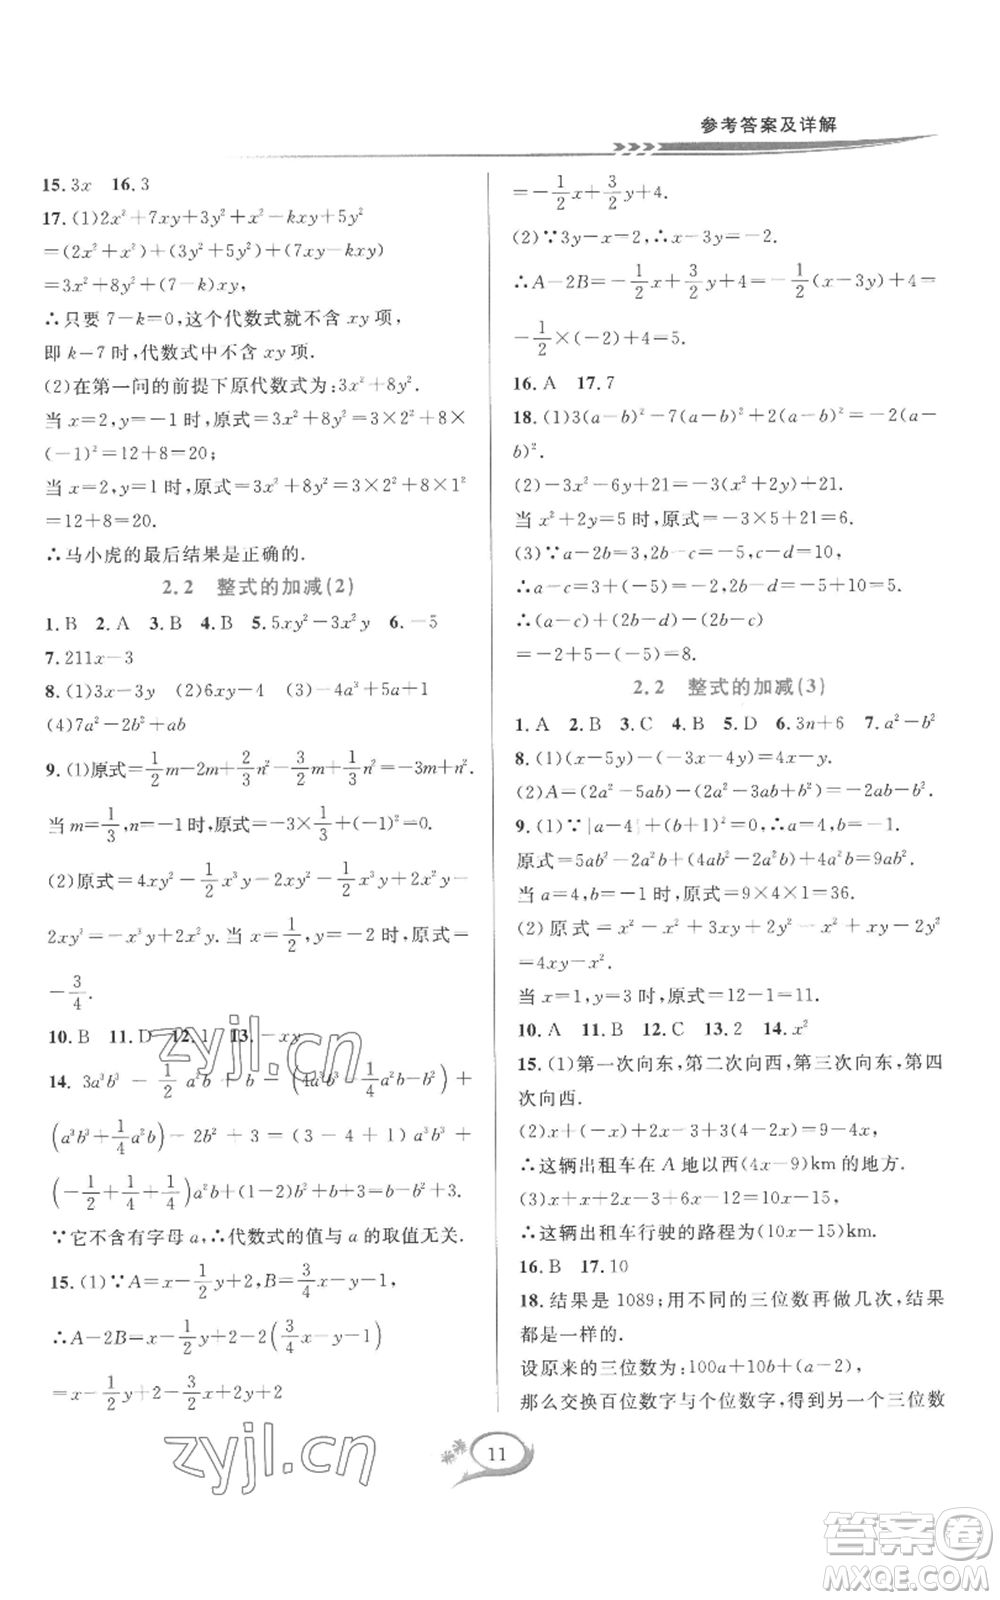 参考答案及详解
15. 3x 16. 3
17. (1)2x²+7xy+3y²+x²-kxy+5y²
=(2x²+x²)+(3y²+5y²)+(7xy-kxy)
=3x²+8y²+(7-k)xy,
∴只要 7-k=0,这个代数式就不含 xy 项,
即 k-7 时,代数式中不含 xy 项.
(2)在第一问的前提下原代数式为:3x²+8y².
当 x=2,y=-1 时,原式=3x²+8y²=3×2²+8×
(-1)²=12+8=20;
当 x=2,y=1 时,原式=3x²+8y²=3×2²+8×1²
=12+8=20.
∴马小虎的最后结果是正确的.
2.2 整式的加减(2)
1. B 2. A 3. B 4. B 5. 5xy²-3x²y 6. -5
7. 211x-3
8. (1)3x-3y (2)6xy-4 (3)-4a³+5a+1
(4)7a²-2b²+ab
9. (1)原式=1/2m-2m+2/3n²-3/2m+1/3n²=-3m+n².
当 m=1/3,n=-1 时,原式=-3×1/3+(-1)²=0.
(2)原式=4xy²-1/2x³y-2xy²-1/2x³y-
2xy³=-x³y-2x²y.当 x=1/2,y=-2 时,原式=
-3/4.
10. B 11. D 12. 1 13. -xy
14. 3a³b³-1/2a²b+b-(4a³b³-1/4a²b-b²)+
(a³b³+1/4a²b)-2b²+3=(3-4+1)a³b³+
(-1/2+1/4+1/4)a²b+(1-2)b²+b+3=b-b²+3.
∵它不含有字母 a,∴代数式的值与 a 的取值无关.
15. (1)∵A=x-1/2y+2,B=3/4x-y-1,
∴A-2B=x-1/2y+2-2(3/4x-y-1)
=x-1/2y+2-3/2x+2y+2
=-1/2x+3/2y+4.
(2)∵3y-x=2,∴x-3y=-2.
∴A-2B=-1/2x+3/2y+4=-1/2(x-3y)+4=
-1/2×(-2)+4=5.
16. A 17. 7
18. (1)3(a-b)²-7(a-b)²+2(a-b)²=-2(a-
b)².
(2)-3x²-6y+21=-3(x²+2y)+21.
当 x²+2y=5 时,原式=-3×5+21=6.
(3)∵a-2b=3,2b-c=-5,c-d=10,
∴a-c=3+(-5)=-2,2b-d=-5+10=5.
∴(a-c)+(2b-d)-(2b-c)
=-2+5-(-5)=8.
2.2 整式的加减(3)
1. A 2. B 3. C 4. B 5. D 6. 3n+6 7. a²-b²
8. (1)(2x-3y)-(x-4y)=x-y.
(2)A=(2a²-5ab)-(-2ab+b²)=2a²-3ab-b².
9. (1)∵|a-4|+(b+1)²=0,∴a=4,b=-1.
原式=5ab²-2a²b+(4ab²-2a²b)+4a²b=9ab².
当 a=4,b=-1时,原式=9×4×1=36.
(2)原式=x²-2x²+4y+2x²-4xy-2y²
=4xy-x².
当 x=1,y=3 时,原式=12-1=11.
10. A 11. B 12. C 13. 2 14. x²
15. (1)第一次向东,第二次向西,第三次向东,第四
次向西.
(2)x+(-3x)+(x-3)+2(6-x)=9-4x,
∴这辆出租车在 A 地以西(4x-9)km 的地方.
(3)x+3x+x-3+6x-12=10x-15,
∴这辆出租车行驶的路程为(10x-15)km.
16. B 17. 10
18. 结果是 1089;用不同的三位数再做几次,结果
都是一样的.
设原来的三位数为:100a+10b+(a-2),
那么交换百位数字与个位数字,得到另一个三位数
11
zyjl.cn
zyjl.cn
答案圈
MXQE.COM